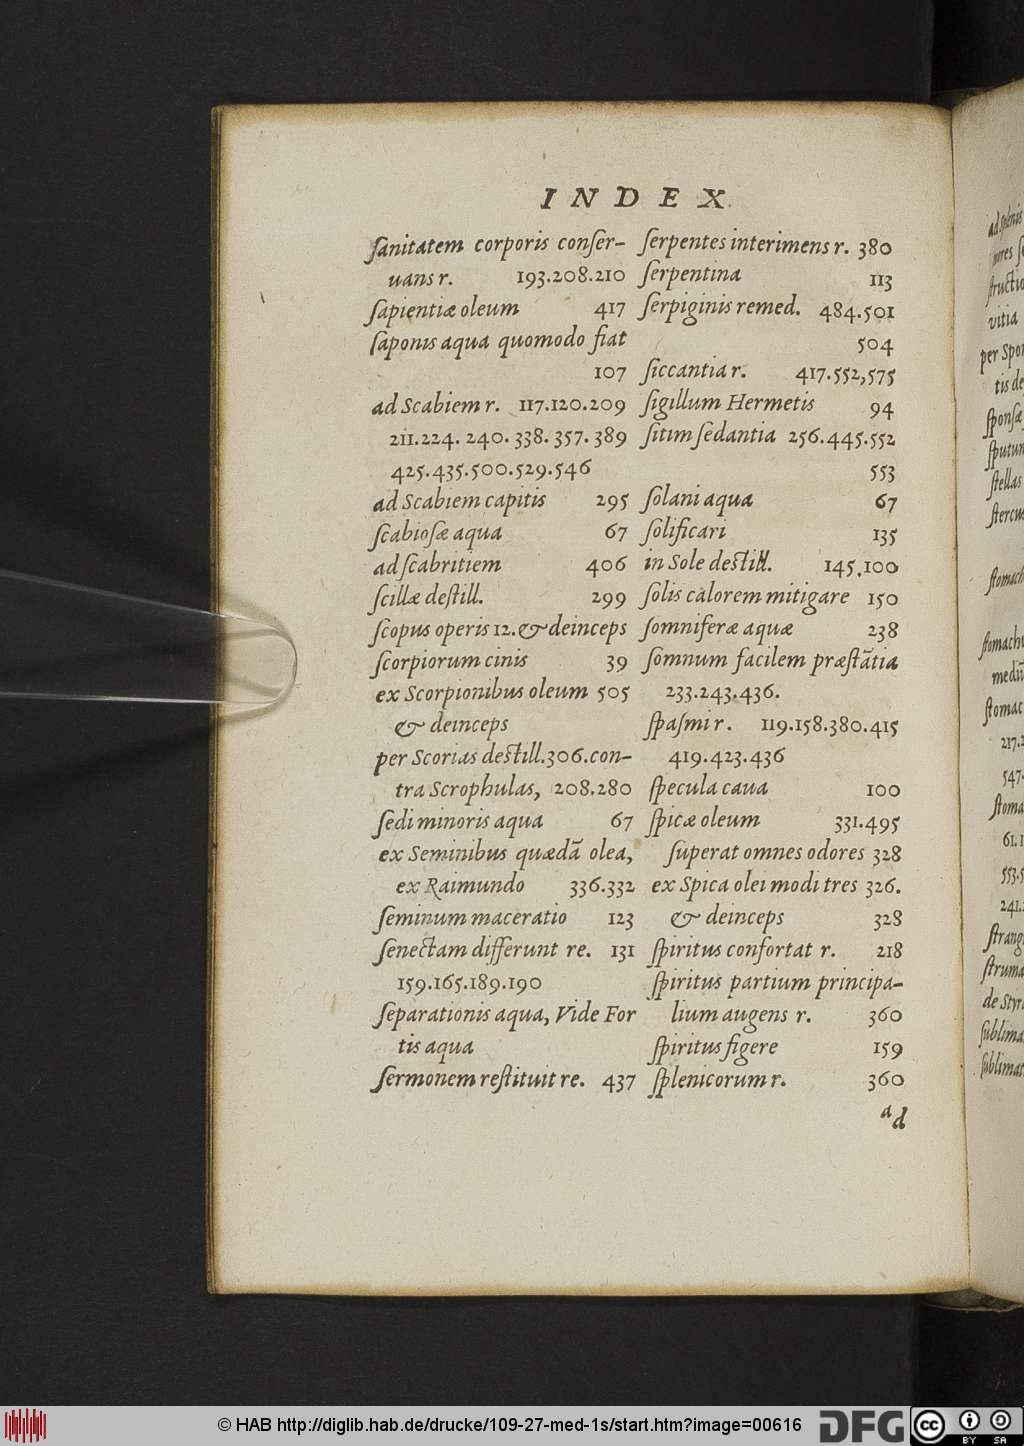 INDEX
ſanitatem corporis conſer-
uans r. 193.208.210
ſapientiæ oleum 417
ſaponis aqua quomodo fiat
107
ad Scabiem r. 117.120.209
211.224. 240. 338. 357. 389
425.435.500.529.546
ad Scabiem capitis 295
ſcabioſæ aqua 67
ad ſcabritiem 406
ſcillæ deſtill. 299
ſcopus operis 12. & deinceps
ſcorpiorum cinis 39
ex Scorpionibus oleum 505
& deinceps
per Scorias deſtill.306.con-
tra Scrophulas, 208.280
ſedi minoris aqua 67
ex Seminibus quædã olea,
ex Raimundo 336.332
ſeminum maceratio 123
ſenectam differunt re. 131
159.165.189.190
ſeparationis aqua, Vide For
tis aqua
ſermonem reſtituit re. 437
ſerpentes interimens r. 380
ſerpentina 113
ſerpiginis remed. 484.501
504
ſiccantia r. 417.552,575
ſigillum Hermetis 94
ſitim ſedantia 256.445.552
553
ſolani aqua 67
ſolificari 135
in Sole deſtill. 145.100
ſolis calorem mitigare 150
ſomniferæ aquæ 238
ſomnum facilem præſtãtia
233.243.436.
ſpaſmi r. 119.158.380.415
419.423.436
ſpecula caua 100
ſpicæ oleum 331.495
ſuperat omnes odores 328
ex Spica olei modi tres 326.
& deinceps 328
ſpiritus confortat r. 218
ſpiritus partium principa-
lium augens r. 360
ſpiritus figere 159
ſplenicorum r. 360
ad
per Spon
tis de
ſponſæ
ſputum
ſtellas
ſtercus
ſtomach
ſtomachi
ſtomac
547.
ſtoma
ſtrang
ſtruma
de Styr
ſublima
ſublimat
© HAB http://diglib.hab.de/drucke/109-27-med-1s/start.htm?image=00616
DFG
cc
BY SA